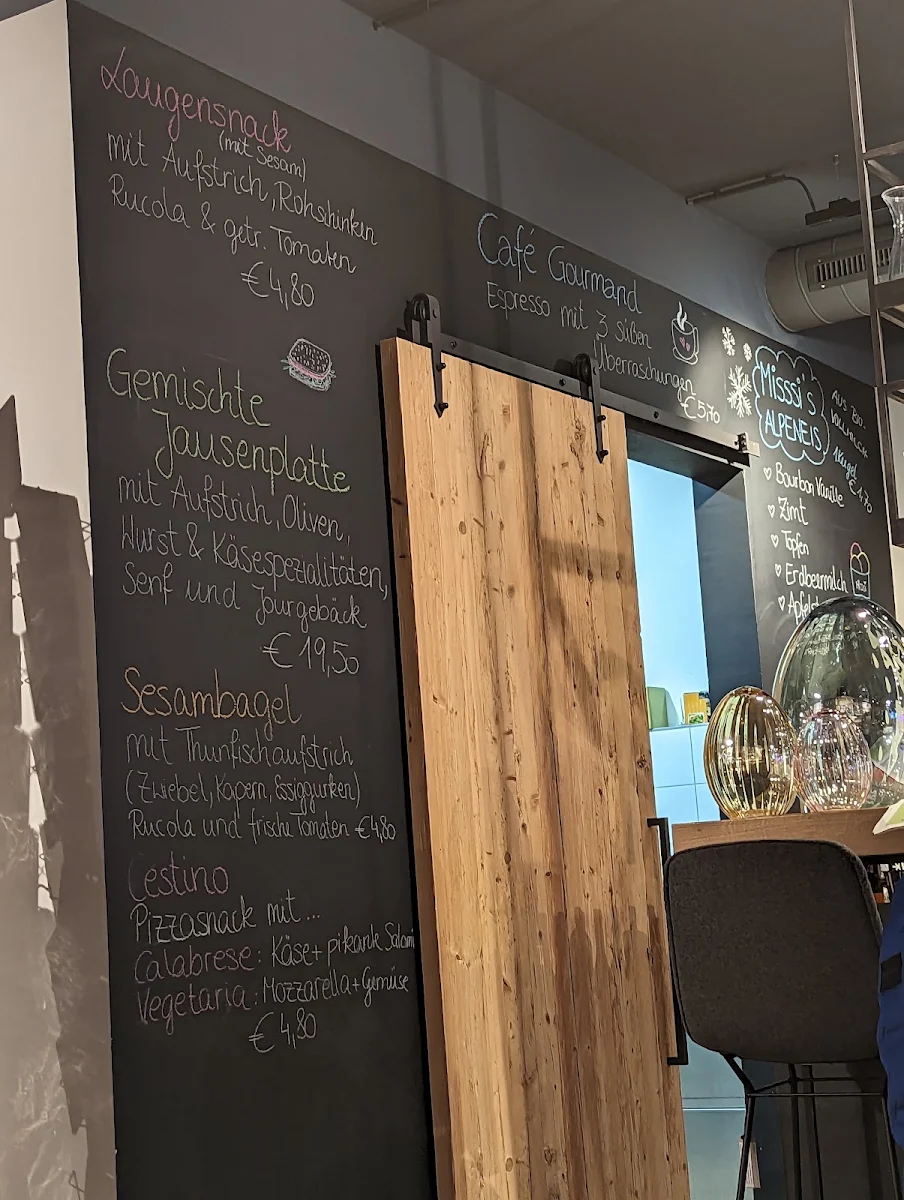 Laugensnack
(mit Sesam)
mit Aufstrich, Rohschinken
Rucola & getr. Tomaten
€ 4,80
Gemischte
Jausenplatte
mit Aufstrich, Oliven,
Wurst & Käsespeziallitäten,
Senf und Jourgebäck
€ 19,50
Sesambagel
mit Thunfischaufstrich
(Zwiebel, Kapern, Essiggurken)
Rucola und frische Tomaten €4,80
Cestino
Pizzasnack mit...
Calabrese: Käse + pikante Salami
Vegetaria: Mozzarella + Gemüse
€ 4,80
Café Gourmand
Espresso mit 3 süßen
Überraschungen
€5,70
Misssi's
ALPENEIS
AUS BIO-
VOLLMILCH
1 Kugel
€ 1,70
Bourbon Vanille
Zimt
Topfen
Erdbeermilch